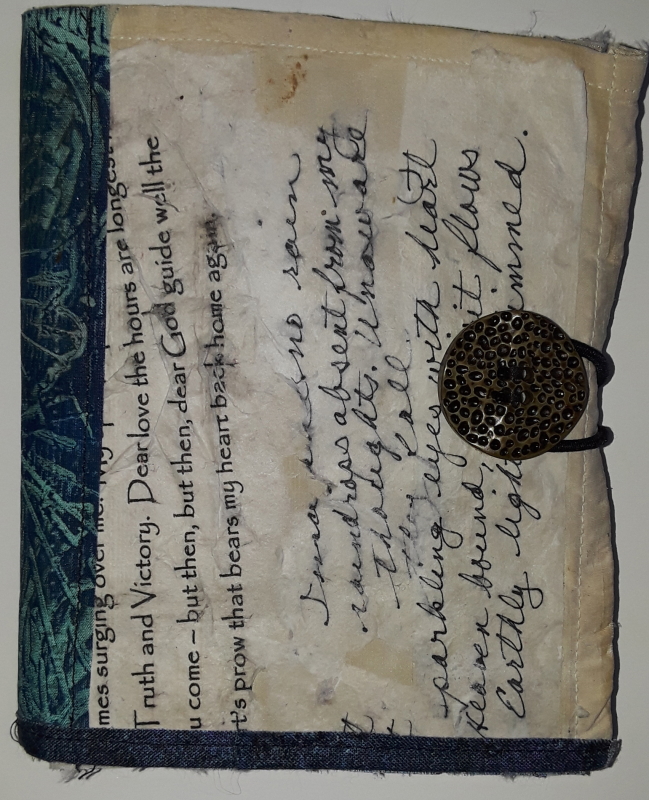 mes surging over me.
Truth and Victory. Dear love the hours are longest
u come – but then, but then, dear God guide well the
t's prow that bears my heart back home again.
no rain
raindrops absent from my
thoughts. Unaware
they fall
sparkling eyes with heart
Heaven bound, it flows
Earthly ligh immed.